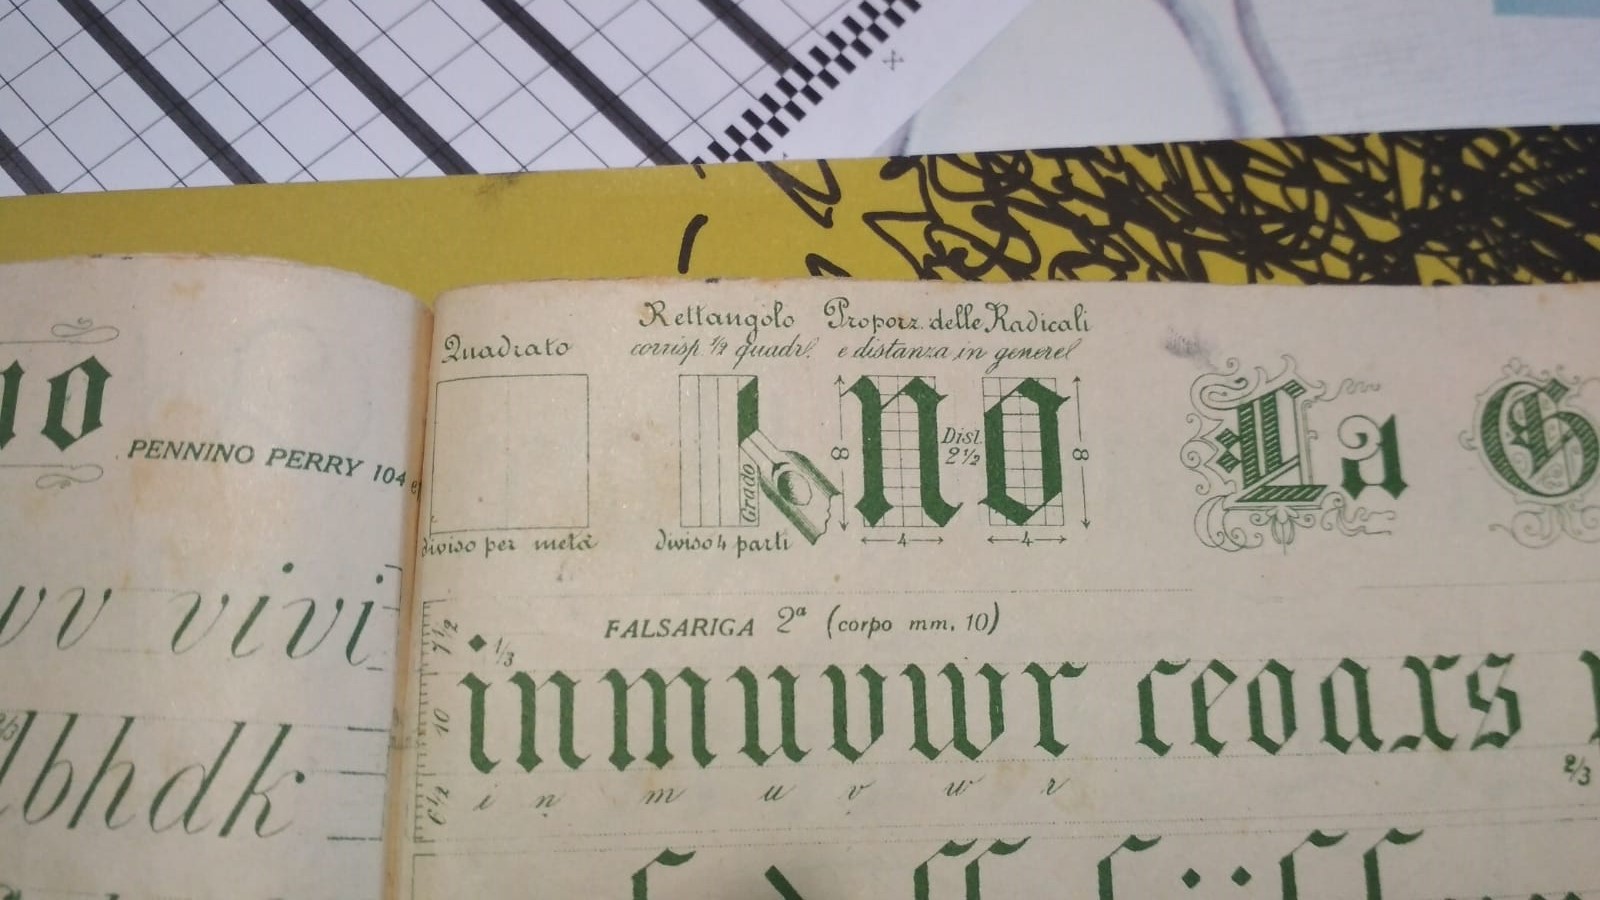 no
PENNINO PERRY 104
vv vivi
lbhdk
Quadrato
diviso per metà
Rettangolo
corrisp. ½ quadr.
Grado
diviso 4 parti
Proporz. delle Radicali
e distanza in generel
8 no 8
Dist.
2½
4 4
La G
FALSARIGA 2ª (corpo mm. 10)
1/3
inmuvwr ceoaxs
10
2/3
i n m u v w r